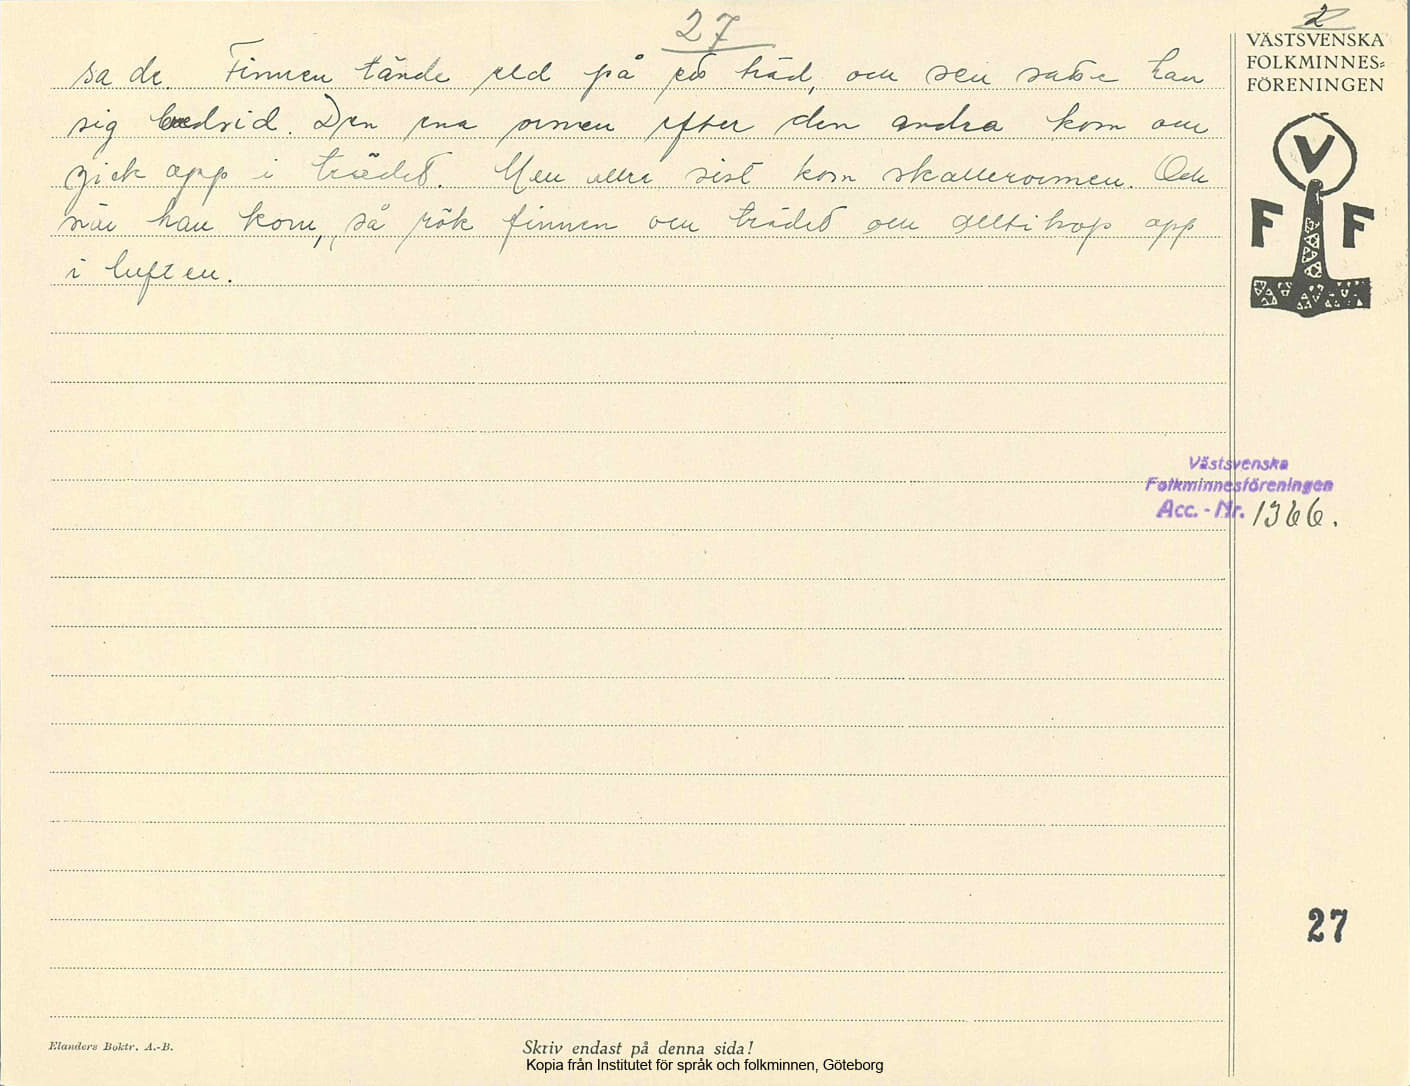 27
2
VÄSTSVENSKA
FOLKMINNES=
FÖRENINGEN
V
F F
sa de. Finnen tände eld på ett träd, och sen satte han
sig bredvid. Den ena ormen efter den andra kom och
gick opp i trädet. Men allra sist kom skallerormen. Och
när han kom, så rök finnen och trädet och alltihop opp
i luften.
Västsvenska
Folkminnesföreningen
Acc. - Nr. 1366.
27
Elanders Boktr. A.-B.
Skriv endast på denna sida!
Kopia från Institutet för språk och folkminnen, Göteborg